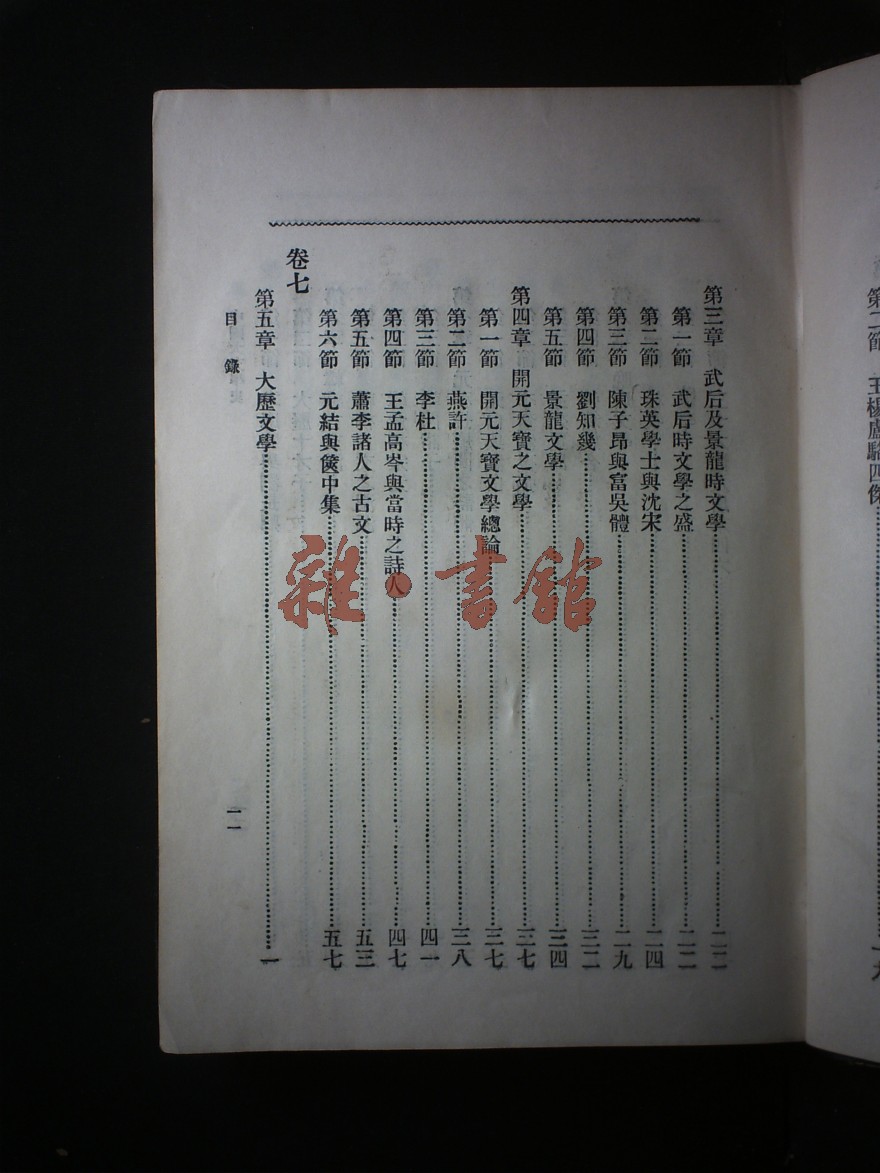 第二節　王楊盧駱四傑……一九
第三章　武后及景龍時文學……二二
第一節　武后時文學之盛……二二
第二節　珠英學士與沈宋……二四
第三節　陳子昂與富吳體……二九
第四節　劉知幾……三二
第五節　景龍文學……三四
第四章　開元天寶之文學……三七
第一節　開元天寶文學總論……三七
第二節　燕許……三八
第三節　李杜……四一
第四節　王孟高岑與當時之詩人……四七
第五節　蕭李諸人之古文……五三
第六節　元結與篋中集……五七
卷七
第五章　大歷文學……一
目錄　一一
雜·書館